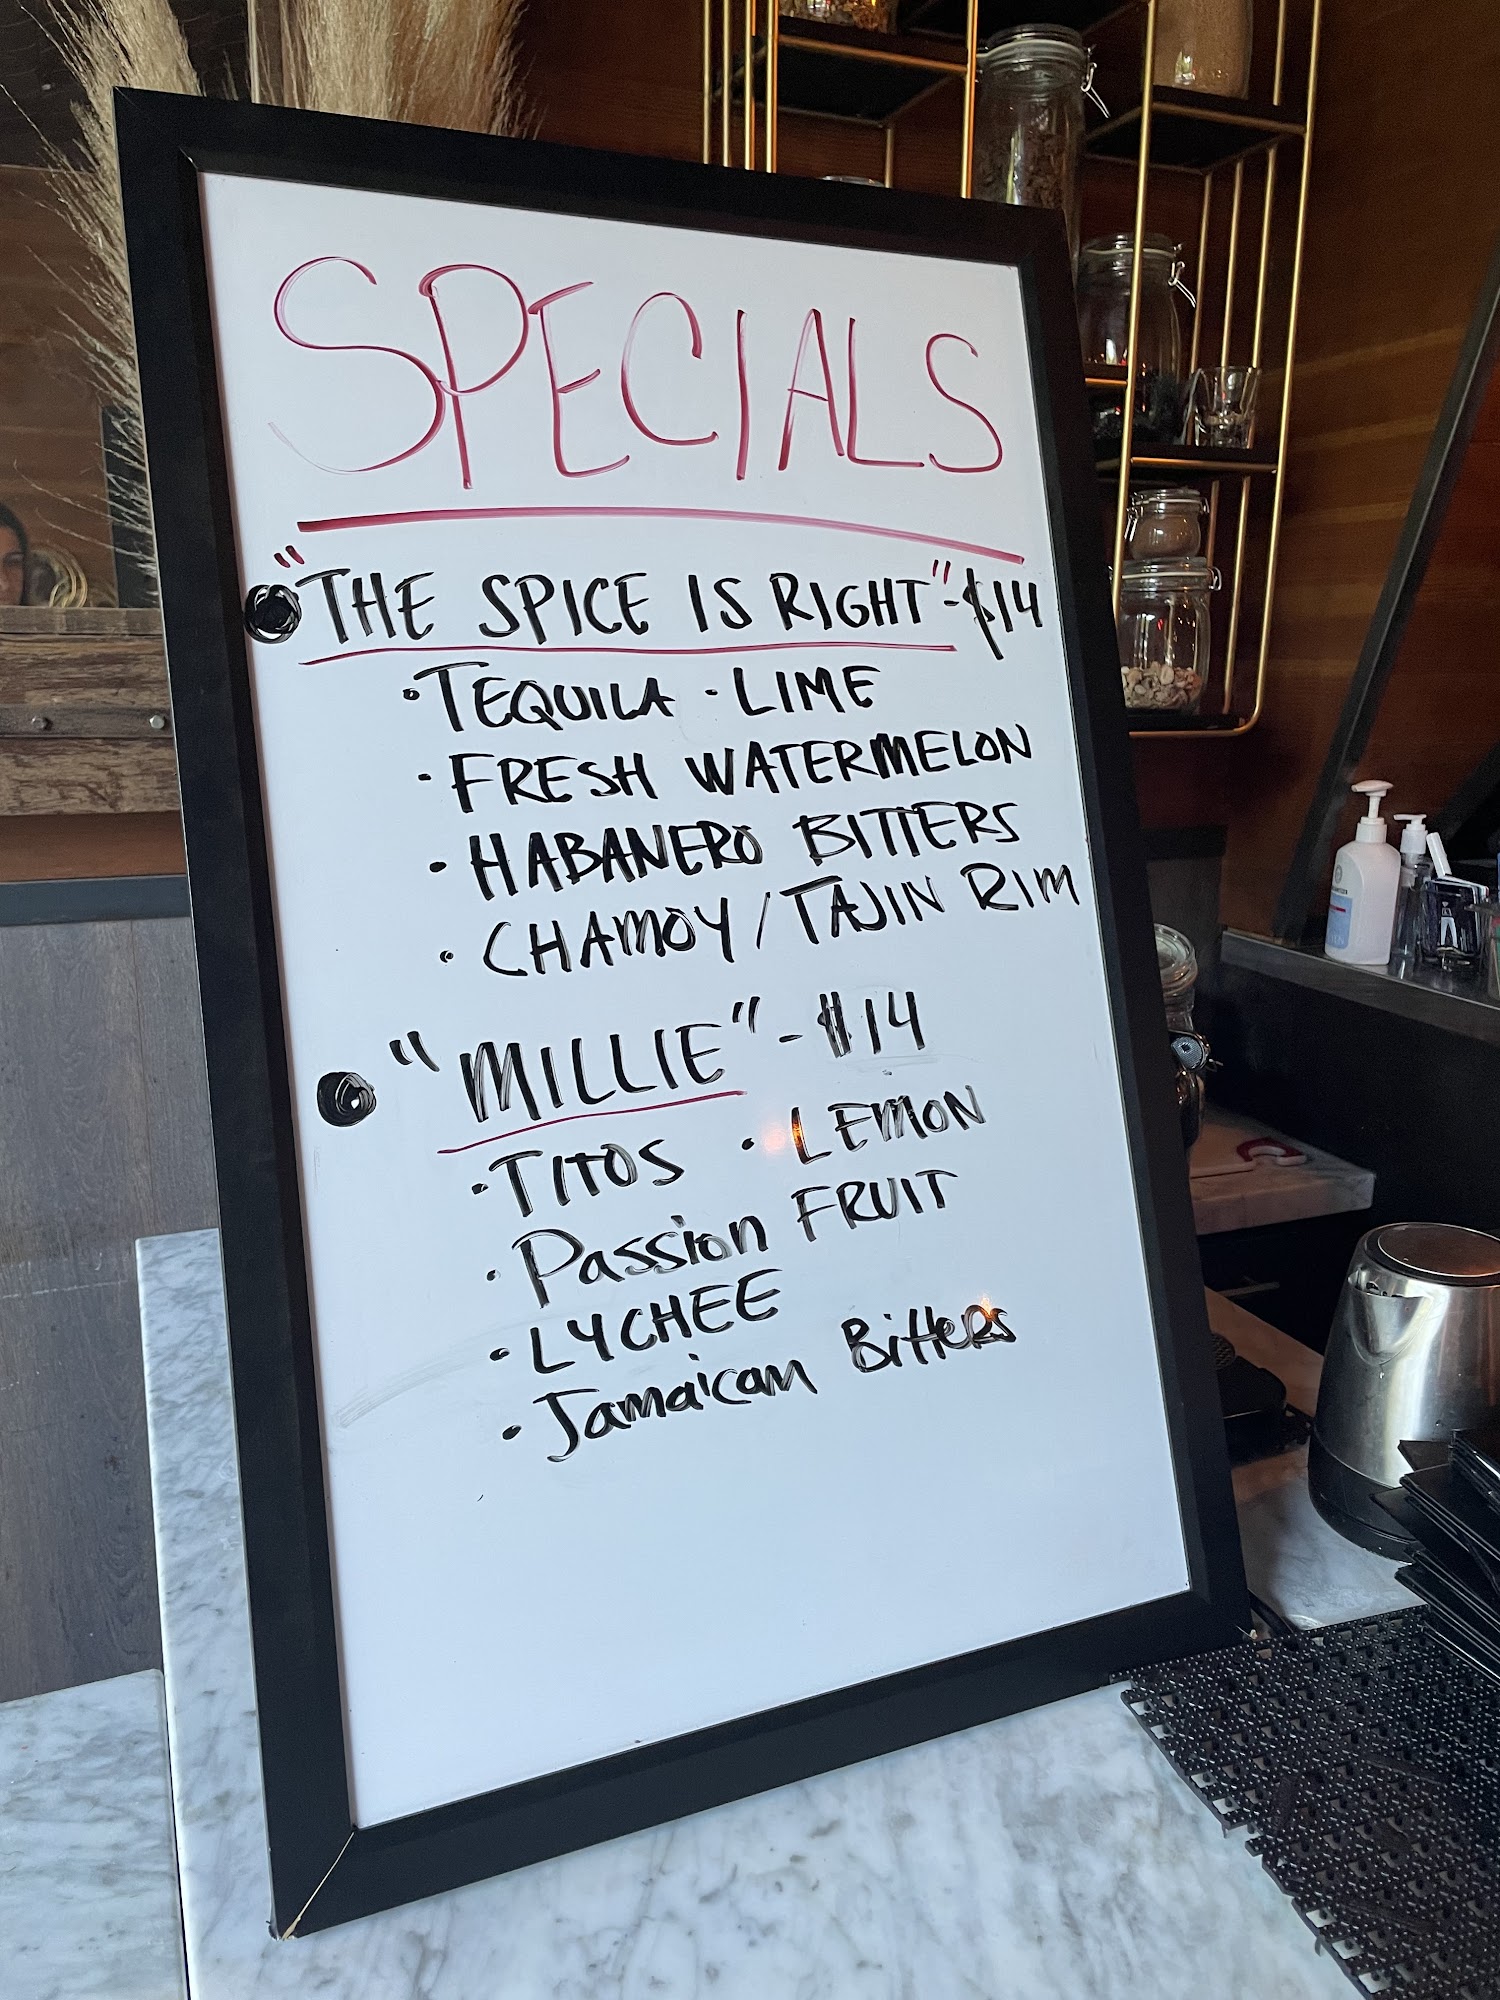 SPECIALS
"THE SPICE IS RIGHT" - $14
· TEQUILA · LIME
· FRESH WATERMELON
· HABANERO BITTERS
· CHAMOY / TAJIN RIM
"MILLIE" - $14
· TITOS · LEMON
· Passion FRUIT
· LYCHEE
· Jamaican Bitters